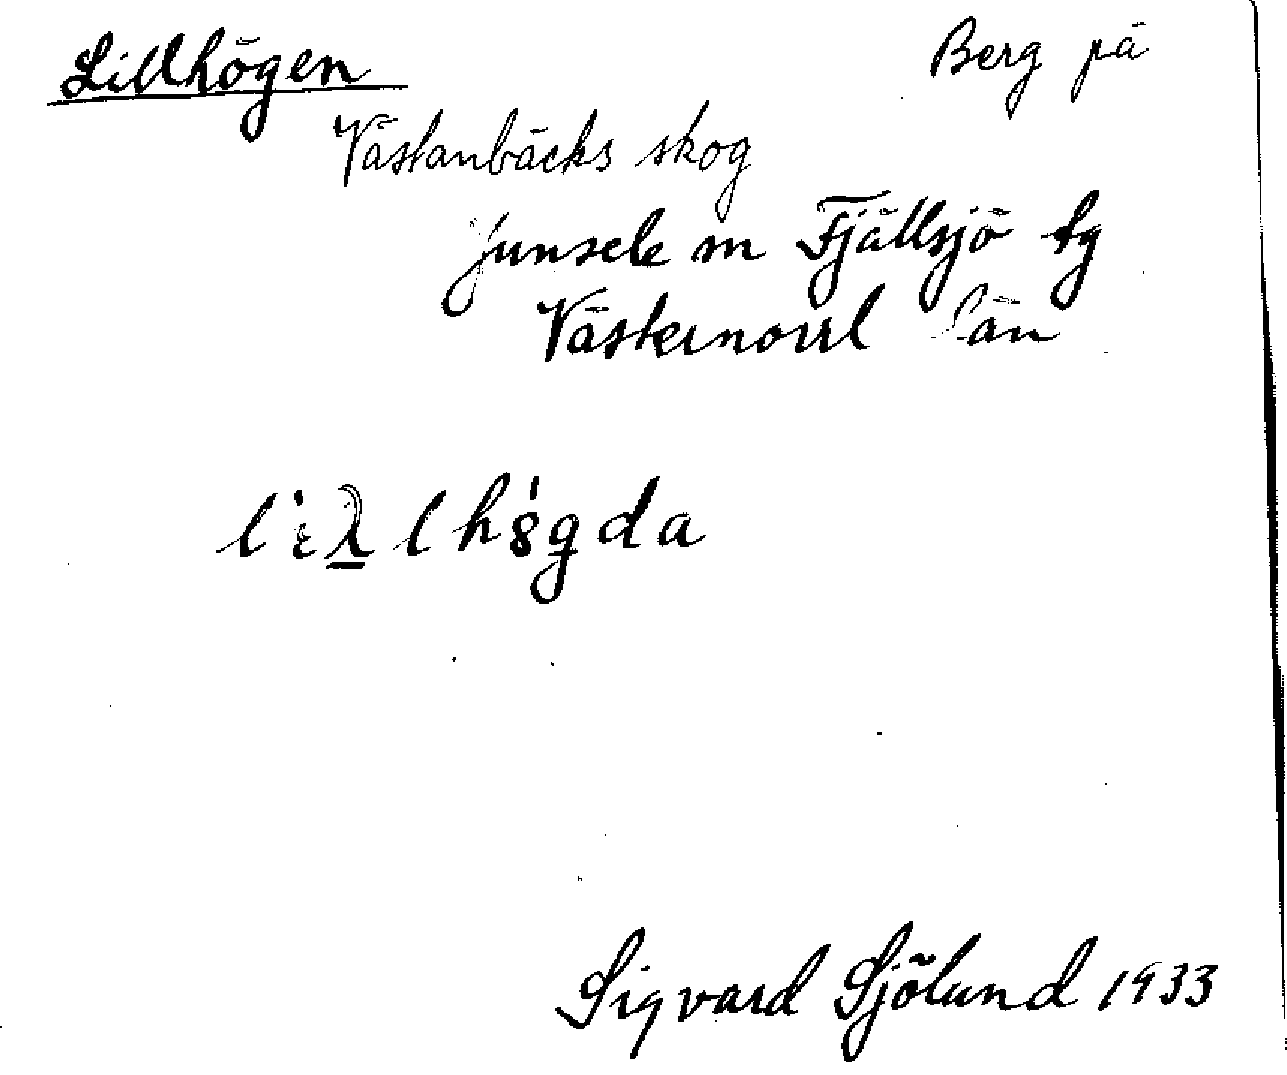 Lillhögen Berg på
Västanbäcks skog
Junsele sn Fjällsjö tg
Västernorrl län
Sigvard Sjölund 1933